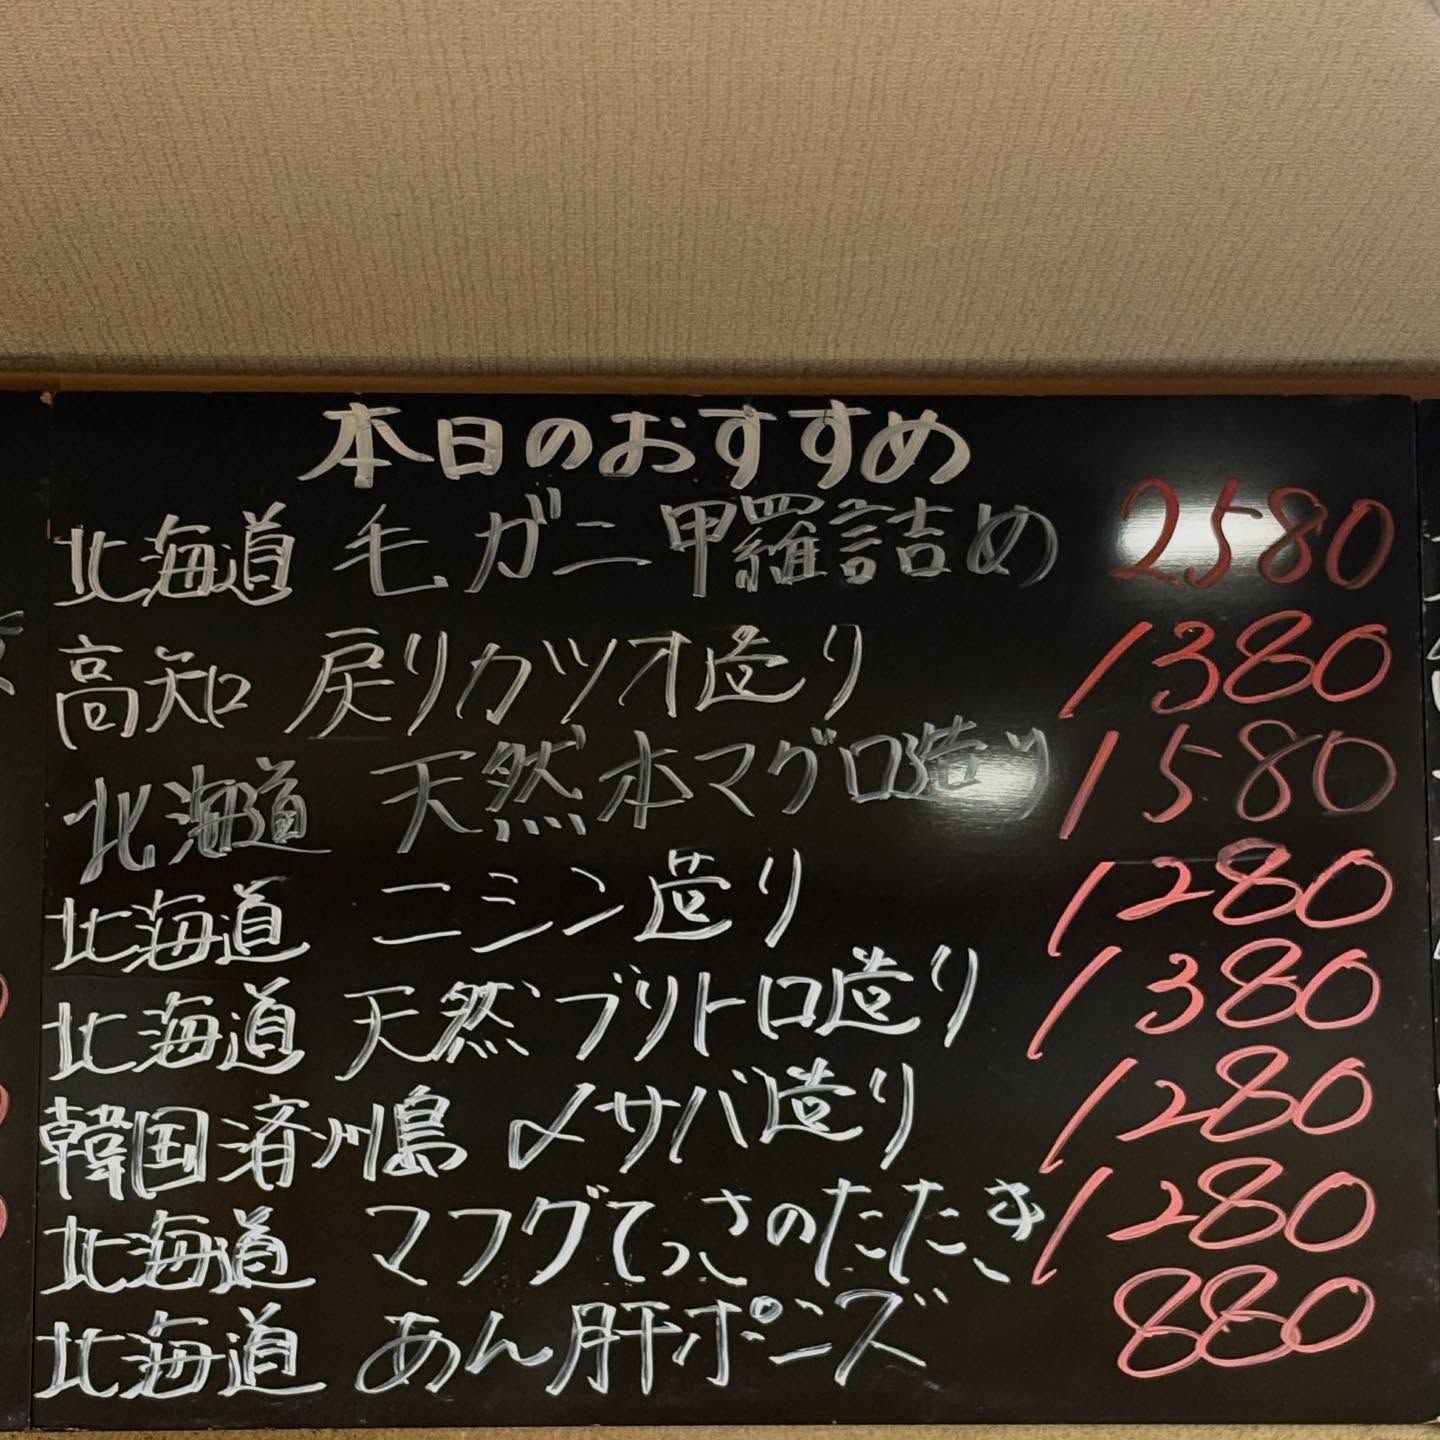 本日のおすすめ
北海道 毛ガニ甲羅詰め 2580
高知 戻りカツオ造り 1380
北海道 天然本マグロ造り 1580
北海道 ニシン造り 1280
北海道 天然ブリトロ造り 1380
韓国済州島 〆サバ造り 1280
北海道 マフグてっさのたたき 1280
北海道 あん肝ポンズ 880